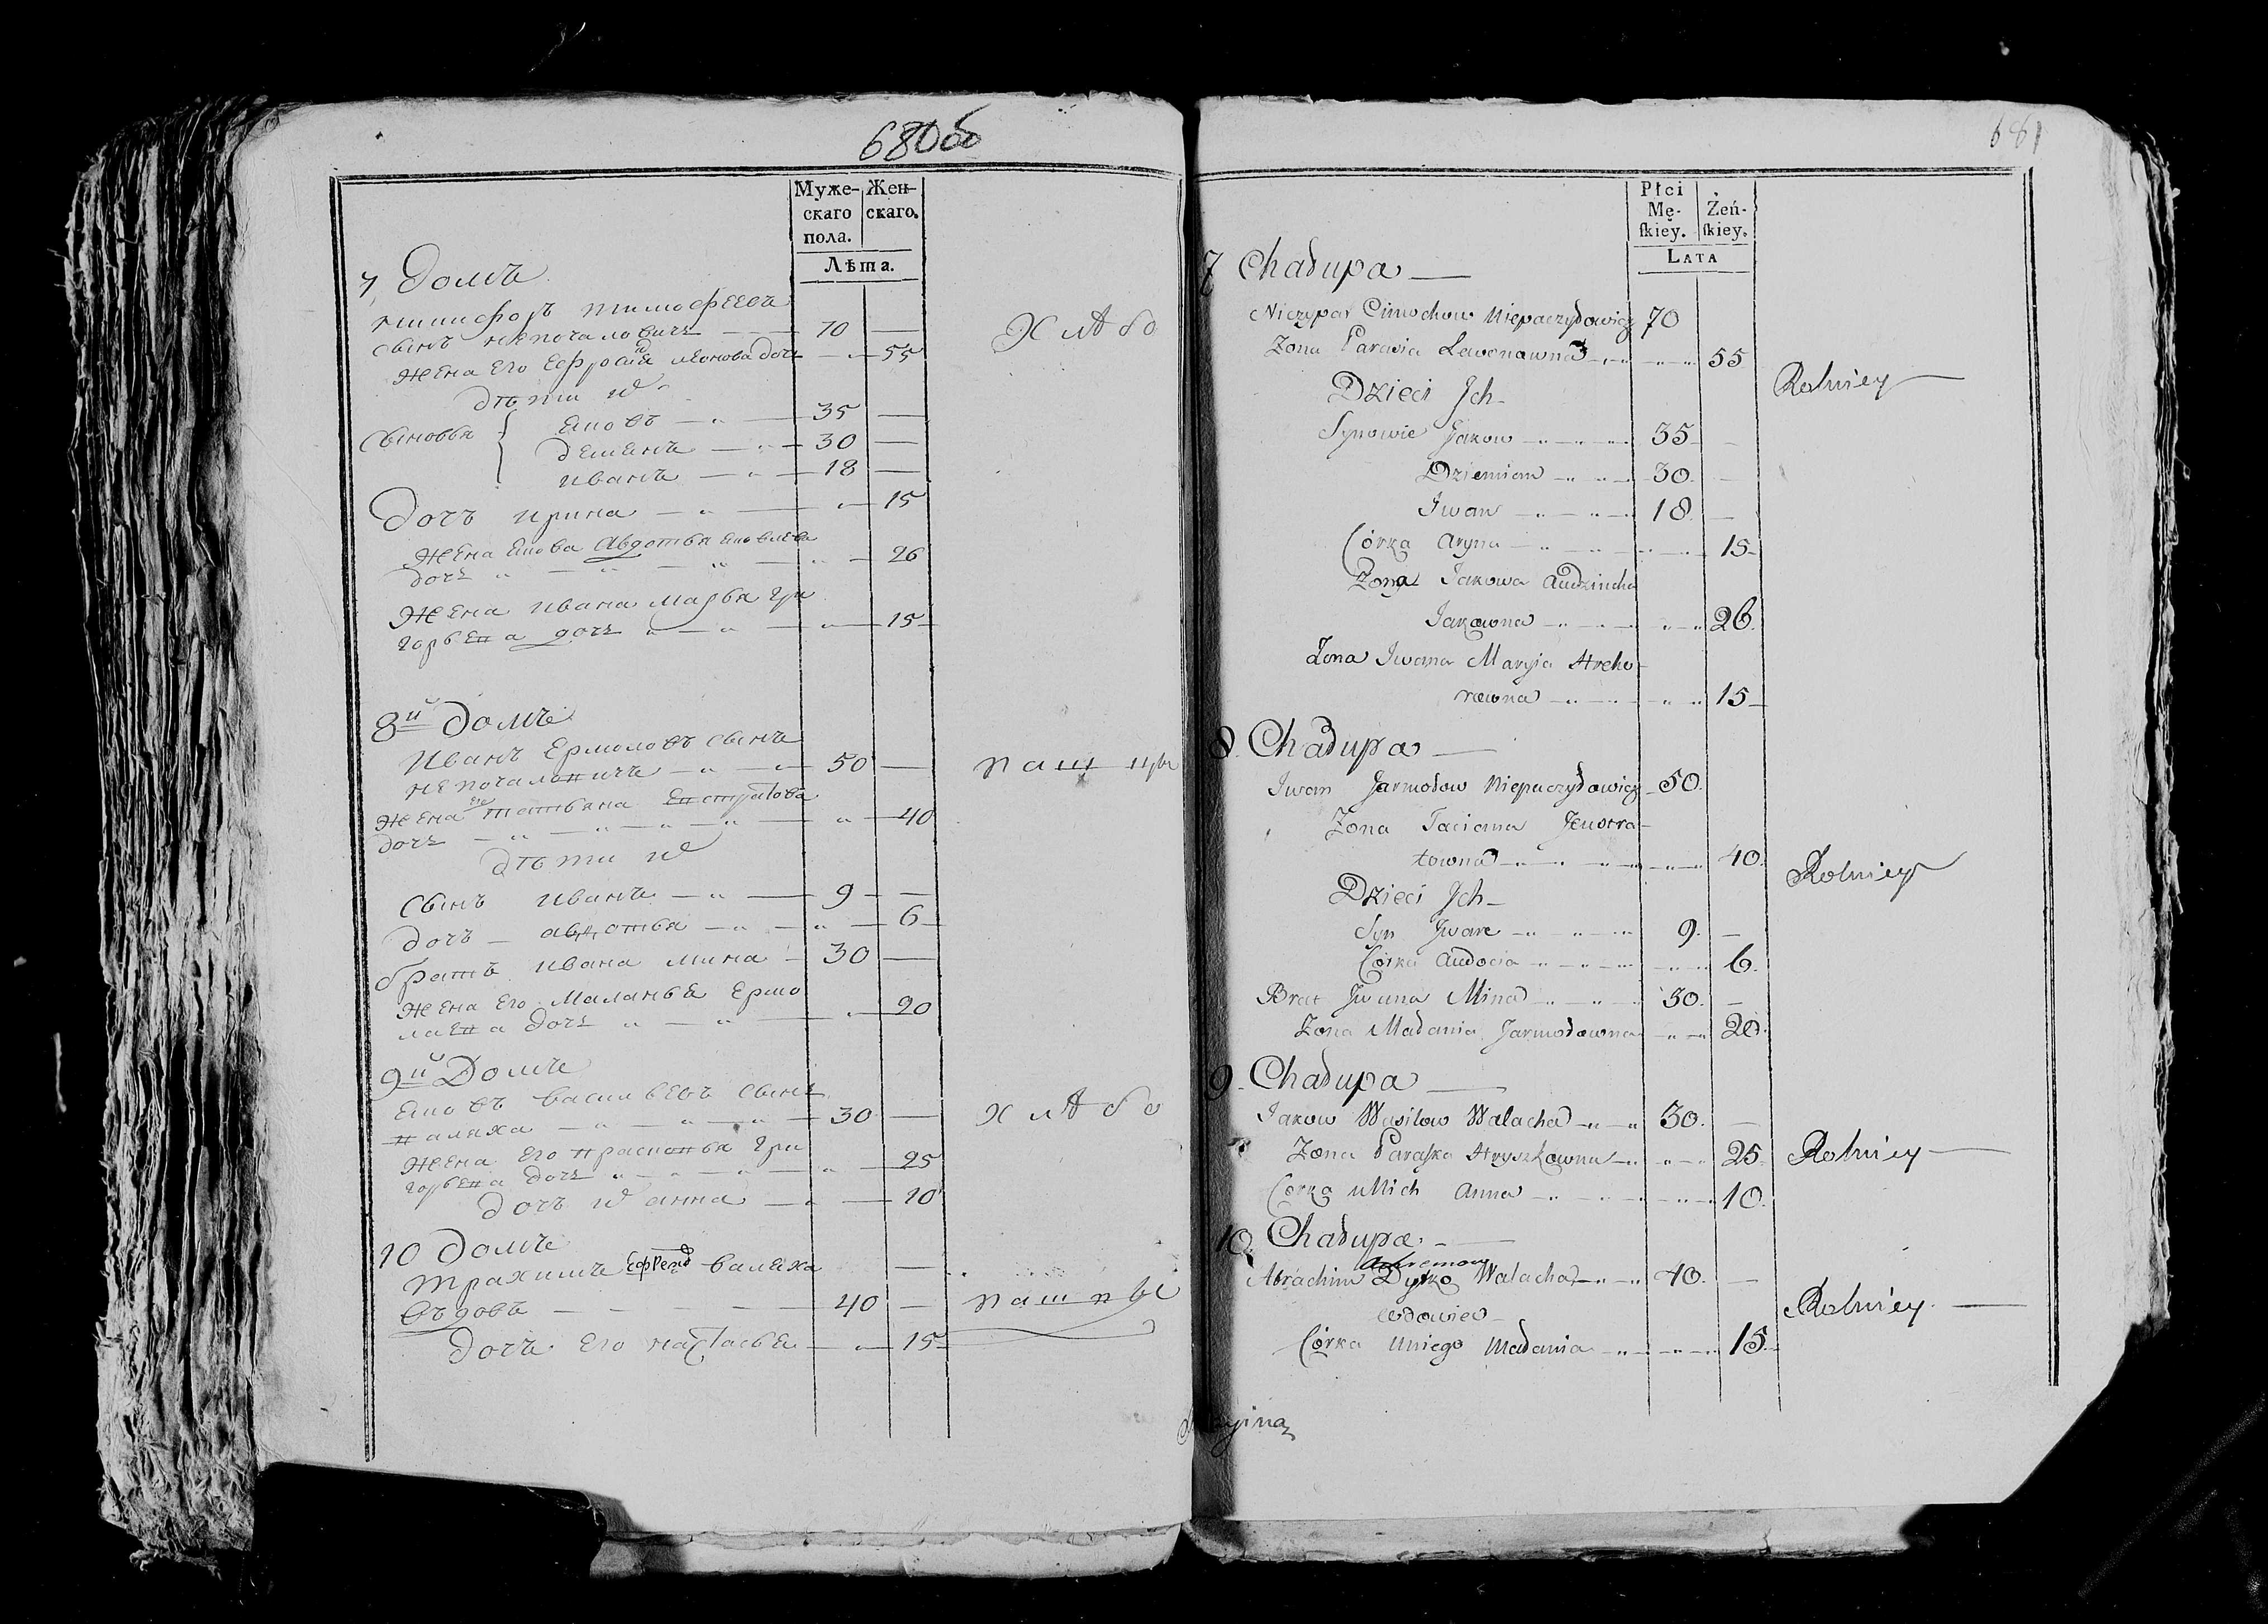 680об
Муже-
скаго
пола.
Жен-
скаго.
Лѣта.
7, Домъ
Никифоръ Тимофеевъ
сынъ Непочаловичъ 70
Жена его Ефросиня Леонова дочь 55
дѣти их
Сыновья Яковъ 35
Демянъ 30
Иванъ 18
Дочъ Ирина 15
Жена Якова Авдотья Яковлева
дочь 26
Жена Ивана Марья Гри
горьева дочь 15
Хлѣбо
8й Домъ
Иванъ Ермоловъ сынъ
Непочаловичъ 50
Жена его Татьяна Евстратова
дочь 40
дѣти их
Сынъ Иванъ 9
дочъ Авдотья 6
братъ Ивана Мина 30
Жена его Маланья Ермо
лаева дочь 20
9й Домъ
Яковъ Васильевъ сынъ
Валяха 30
Жена его Прасковья Гри
горьева дочь 25
Дочъ их Анна 10
Хлѣбо
10 Домъ
Трахимъ Валяха
Вдовъ 40
Дочъ его Настасья 15
681
Płci
Mę-
skiey.
Żeń-
skiey.
LATA
7 Chałupa
Niczypar Cimochow Niepaczyłowicz 70
Zona Parasia Lewonowna 55
Dzieci Jch
Synowie Jakow 35
Dziemian 30
Jwan 18
Córka Aryna 15
Zona Jakowa Audzincha
Jakowna 26
Zona Jwana Maryia Hreho
rewna 15
Rolniey
8. Chałupa
Jwan Jarmołow Niepaczyłowicz 50
Zona Taciana Jewstra
towna 40
Dzieci Jch
Syn Jwan 9
Córka Audocia 6
Brat Jwana Mina 30
Zona Małania Jarmołowna 20
Rolniey
9. Chałupa
Jakow Wasilow Walacha 30
Zona Paraska Hryszkowna 25
Corka uNich Anna 10
Rolniey
10. Chałupa
Abrachim Walacha 40
wdowiec
Córka uniego Małania 15
Rolniey